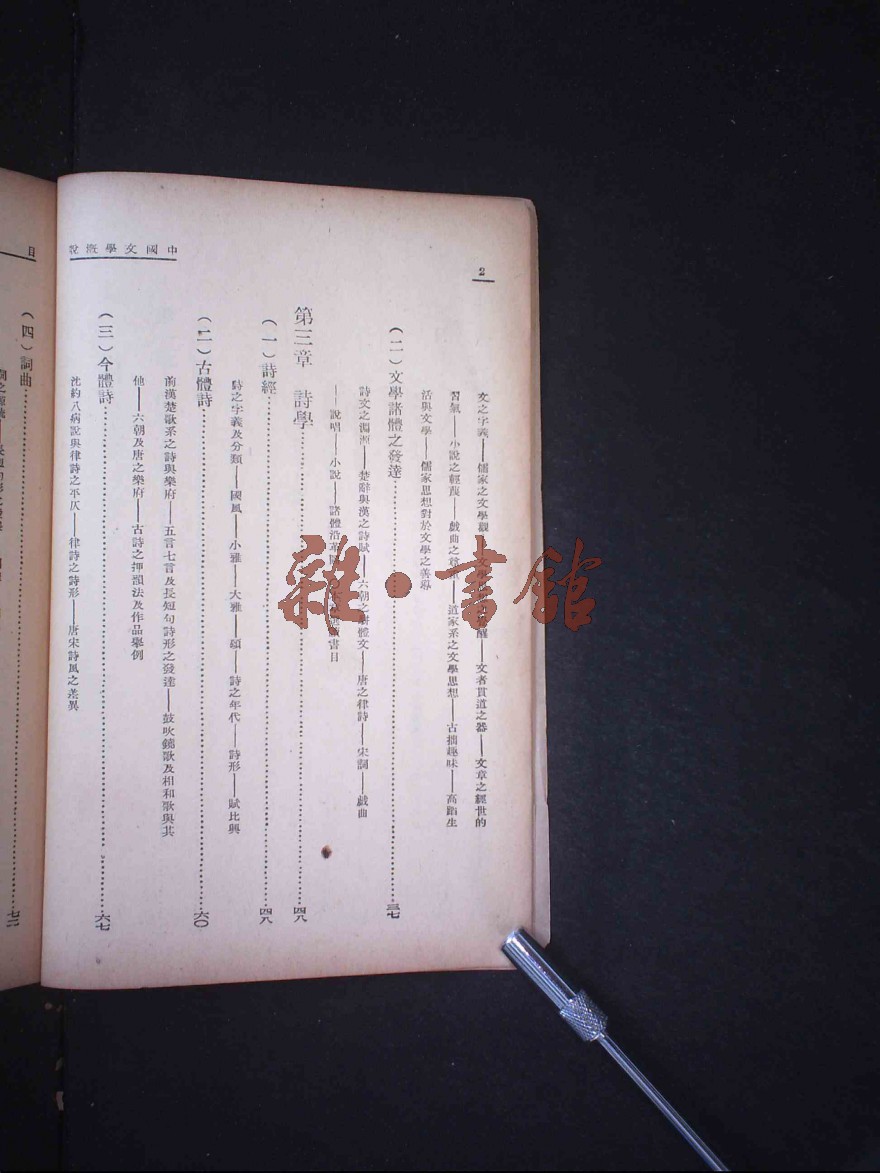 中國文學概說
2
文之字義——儒家之文學觀——文者貫道之器——文章之經世的
習氣——小說之輕蔑——戲曲之——道家系之文學思想——古拙趣味——高蹈生
活與文學——儒家思想對於文學之善導
(二)文學諸體之發達……三七
詩文之淵源——楚辭與漢之詩賦——六朝之駢體文——唐之律詩——宋詞——戲曲
——說唱——小說——諸體沿革書目
第三章 詩學……四八
(一)詩經……四八
詩之字義及分類——國風——小雅——大雅——頌——詩之年代——詩形——賦比興
(二)古體詩……六〇
前漢楚歌系之詩與樂府——五言七言及長短句詩形之發達——鼓吹鐃歌及相和歌與其
他——六朝及唐之樂府——古詩之押韻法及作品舉例
(三)今體詩……六七
沈約八病說與律詩之平仄——律詩之詩形——唐宋詩風之差異
目
(四)詞曲……七二
雜·書館